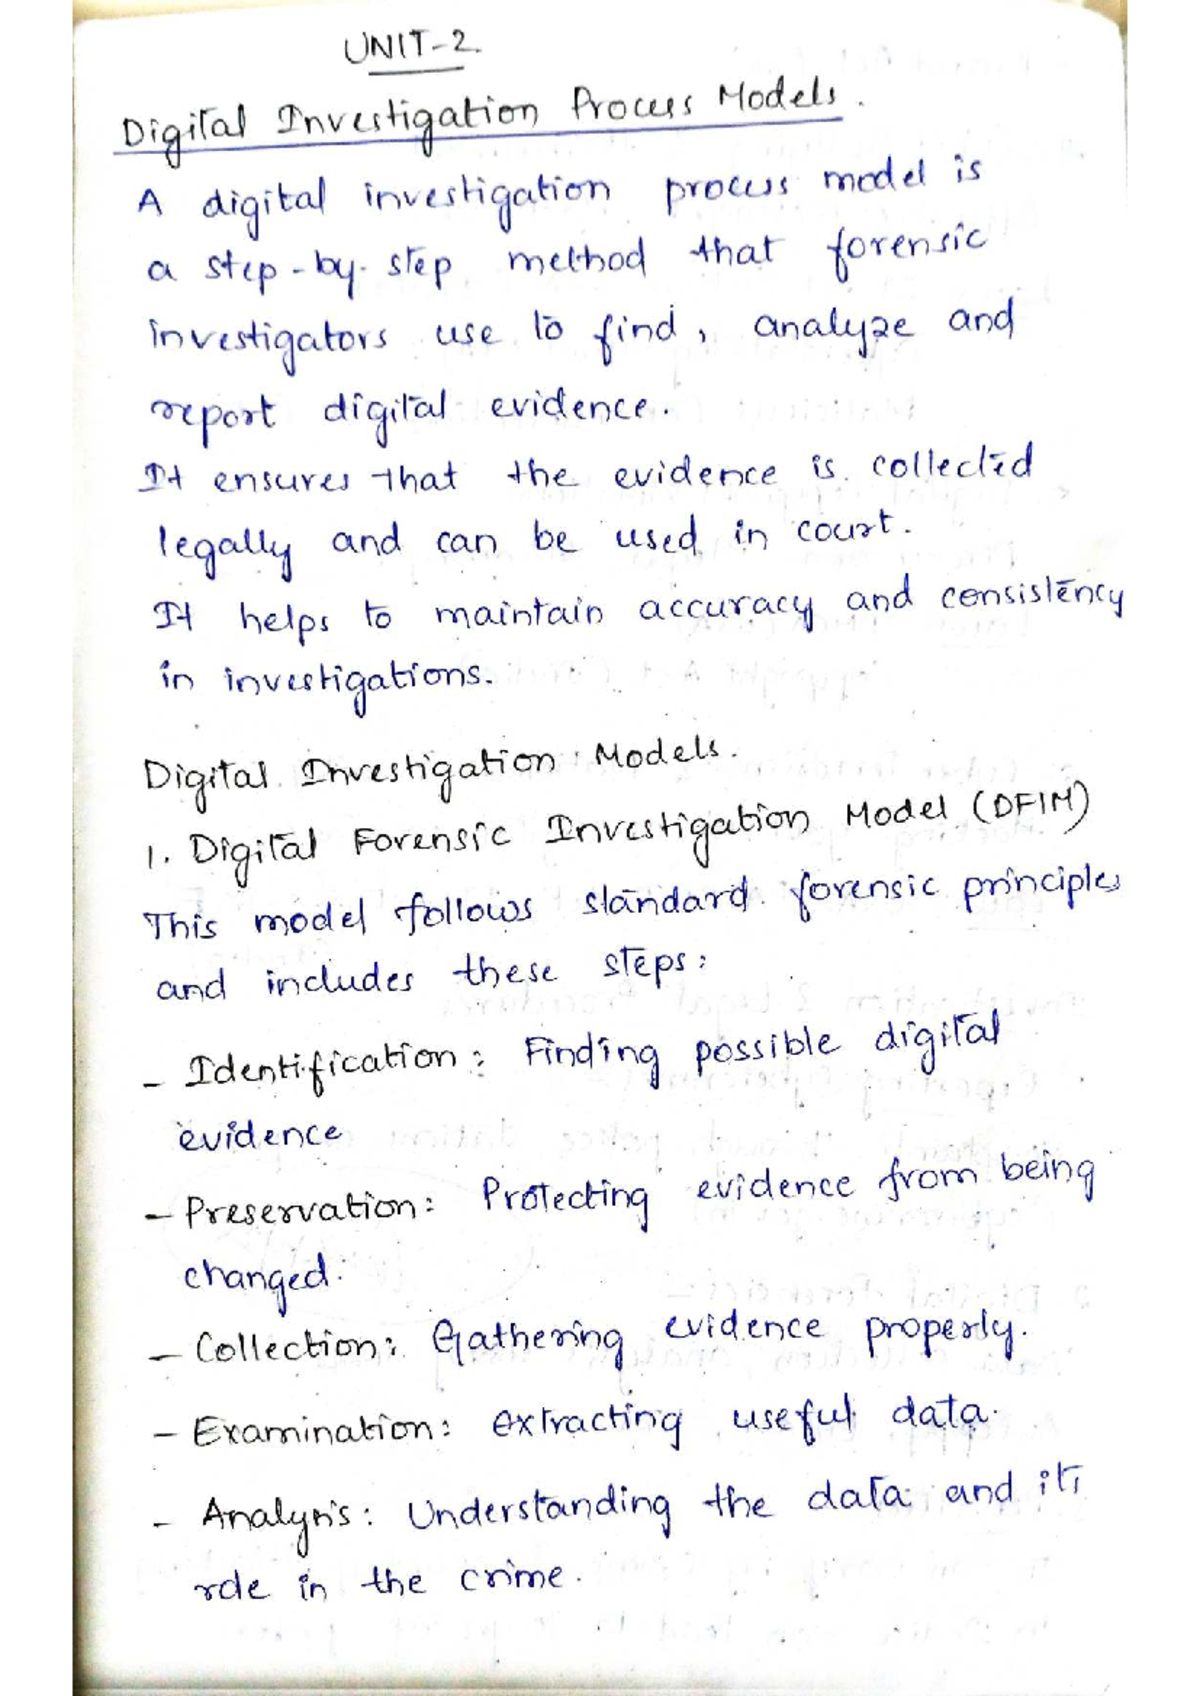 UNIT-2.
Digital Investigation Process Models.
A digital investigation process model is
a step-by-step method that forensic
investigators use to find, analyze and
report digital evidence.
It ensures that the evidence is collected
legally and can be used in court.
It helps to maintain accuracy and consistency
in investigations.
Digital Investigation Models.
1. Digital Forensic Investigation Model (DFIM)
This model follows standard forensic principles
and includes these steps:
- Identification: Finding possible digital
evidence
- Preservation: Protecting evidence from being
changed.
- Collection: Gathering evidence properly.
- Examination: extracting useful data.
- Analysis: Understanding the data and its
role in the crime.